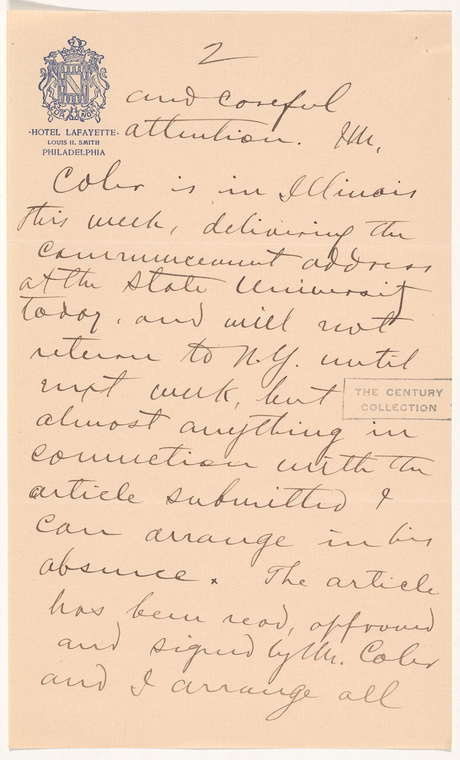 2
HOTEL LAFAYETTE
LOUIS H. SMITH
PHILADELPHIA
and careful
attention. Mr.
Coler is in Illinois
this week, delivering the
commencement address
at the State University
today, and will not
return to N.Y. until
next week, but
THE CENTURY
COLLECTION
almost anything in
connection with the
article submitted I
can arrange in his
absence. The article
has been read, approved
and signed by Mr. Coler
and I arrange all